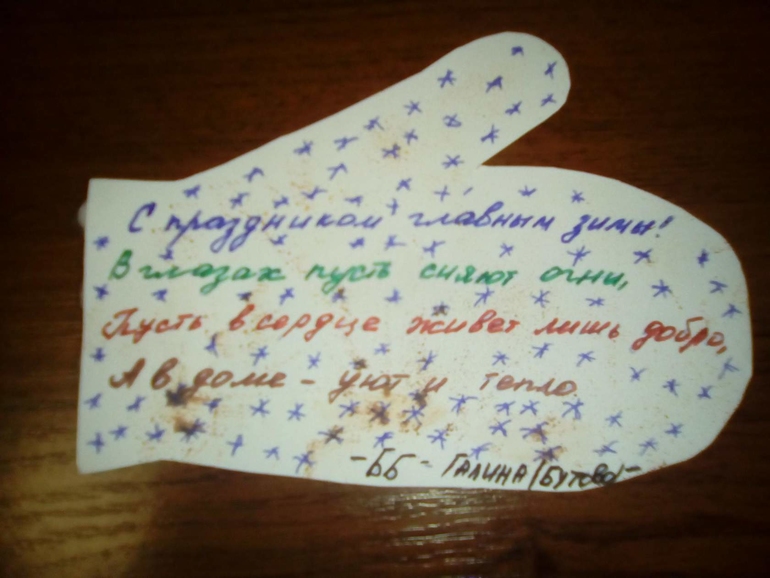 С праздником главным зимы!
В глазах пусть сияют огни,
Пусть в сердце живет лишь добро,
А в доме - уют и тепло
-ББ- ГАЛИНА/БУТОВО/-